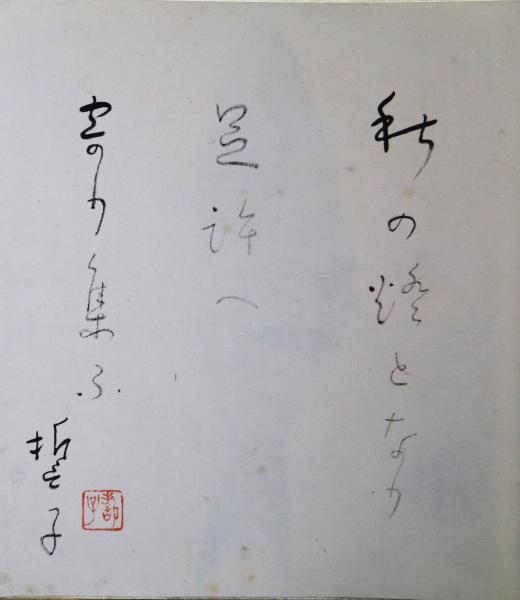 秋の燈となり
足許へ
寄り集ふ
哲子